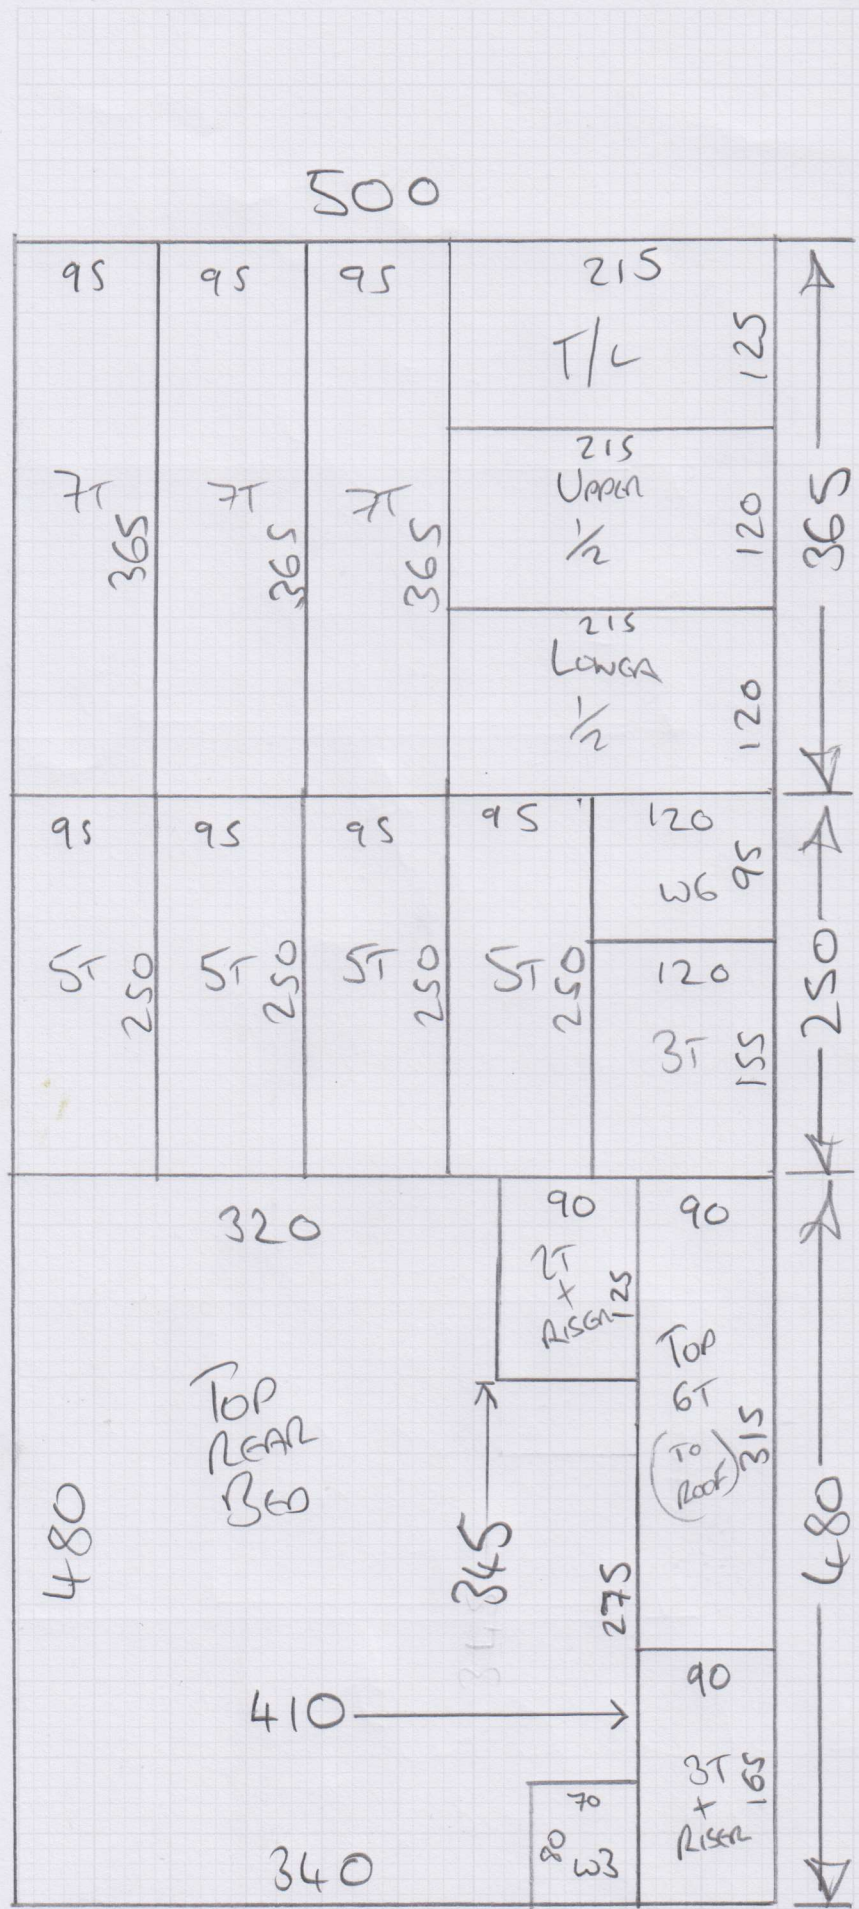 500
95 95 95 215
T/L 125
7T 365
7T 365
7T 365
215
UPPER
1/2 120
215
LOWER
1/2 120
365
95 95 95 95 120
W6 95
5T 250
5T 250
5T 250
5T 250
120
3T 155
250
320
90
2T
+
RISER 125
90
TOP
6T
(TO
ROOF)
315
TOP
REAR
BED
480
345
275
480
410
90
3T
+
RISER
165
70
80 W3
340